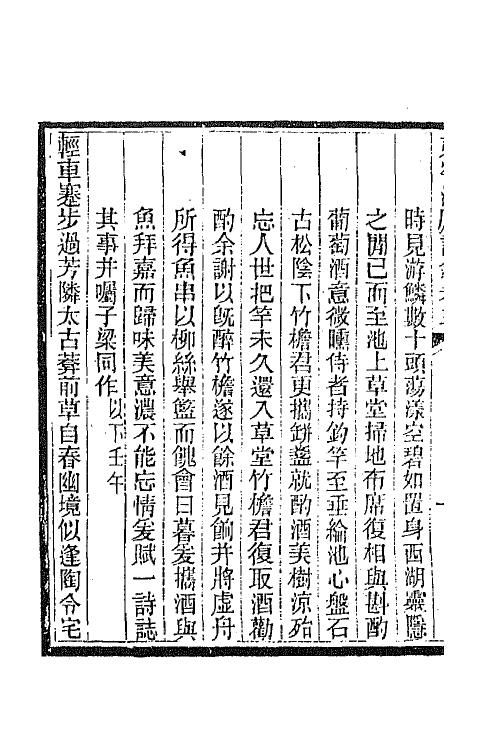 時見游鱗數十頭蕩漾空碧如置身西湖靈隱
之閒已而至池上草堂掃地布席復相與斟酌
葡萄酒意微醺侍者持釣竿至垂綸池心盤石
古松陰下竹檐君更攜缾盞就酌酒美樹涼殆
忘人世把竿未久還入草堂竹檐君復取酒勸
酌余謝以旣醉竹檐遂以餘酒見餉并將虛舟
所得魚串以柳絲舉籃而餽會日暮爰攜酒與
魚拜嘉而歸味美意濃不能忘情爰賦一詩誌
其事并囑子梁同作以下壬午
輕車蹇步過芳隣太古葬前草自春幽境似逢陶令宅